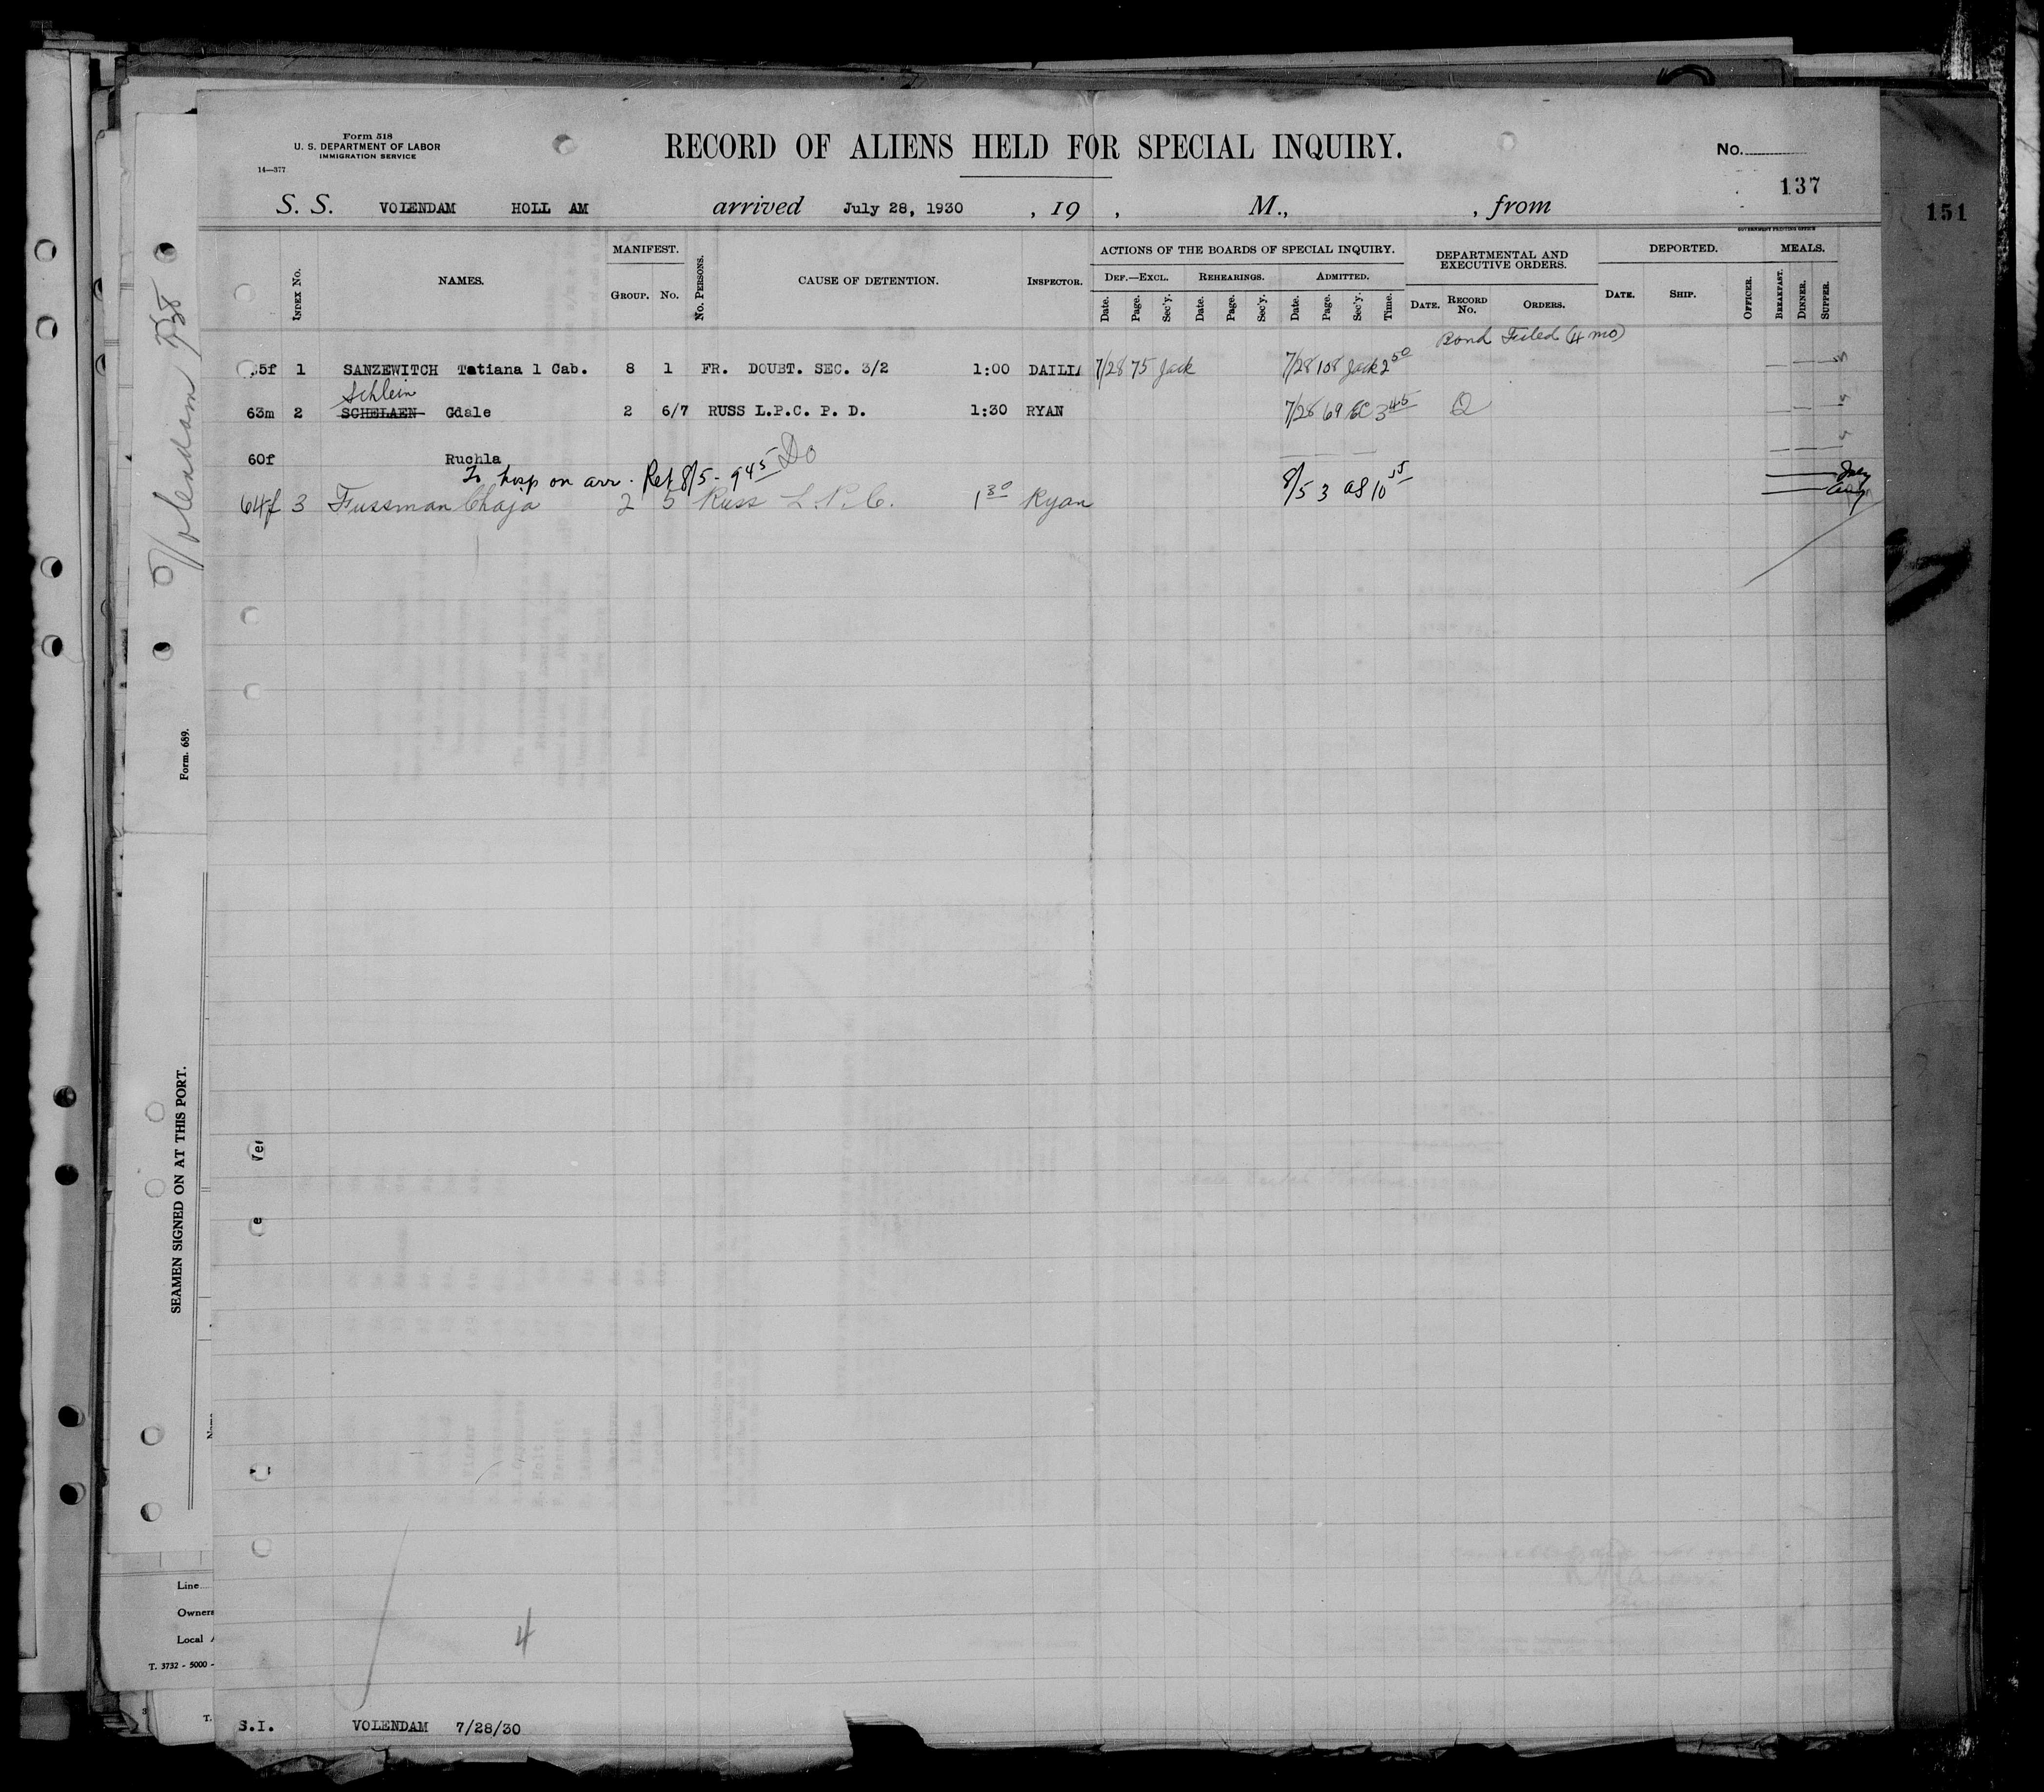 Form 518
U. S. DEPARTMENT OF LABOR
IMMIGRATION SERVICE
14—377
RECORD OF ALIENS HELD FOR SPECIAL INQUIRY.
No.
137
151
S. S. VOLENDAM HOLL AM arrived July 28, 1930 , 19 , M., , from
GOVERNMENT PRINTING OFFICE
INDEX No. NAMES. MANIFEST. GROUP. No. No. PERSONS. CAUSE OF DETENTION. INSPECTOR. ACTIONS OF THE BOARDS OF SPECIAL INQUIRY. DEF.—EXCL. Date. Page. Sec'y. REHEARINGS. Date. Page. Sec'y. ADMITTED. Date. Page. Sec'y. Time. DEPARTMENTAL AND EXECUTIVE ORDERS. DATE. RECORD No. ORDERS. DEPORTED. DATE. SHIP. OFFICER. MEALS. BREAKFAST. DINNER. SUPPER.
Bond Filed (4 mo)
5f 1 SANZEWITCH Tatiana 1 Cab. 8 1 FR. DOUBT. SEC. 3/2 1:00 7/28 75 Jack 7/28 108 Jack 2 50
Schlein
63m 2 SCHELAEN Gdale 2 6/7 RUSS L.P.C. P. D. 1:30 RYAN 7/28 69 3 45
60f Ruchla Do
To hosp on arr. Ret 8/5 - 9 45
64f 3 Fussman Chaja 2 5 Russ L.P.C. 1 30 Ryan 8/5 3 10 55
4
S.I. VOLENDAM 7/28/30
Volendam 7/28
Form. 689.
SEAMEN SIGNED ON AT THIS PORT.
Line
Owners
Local
T. 3732 - 5000 -